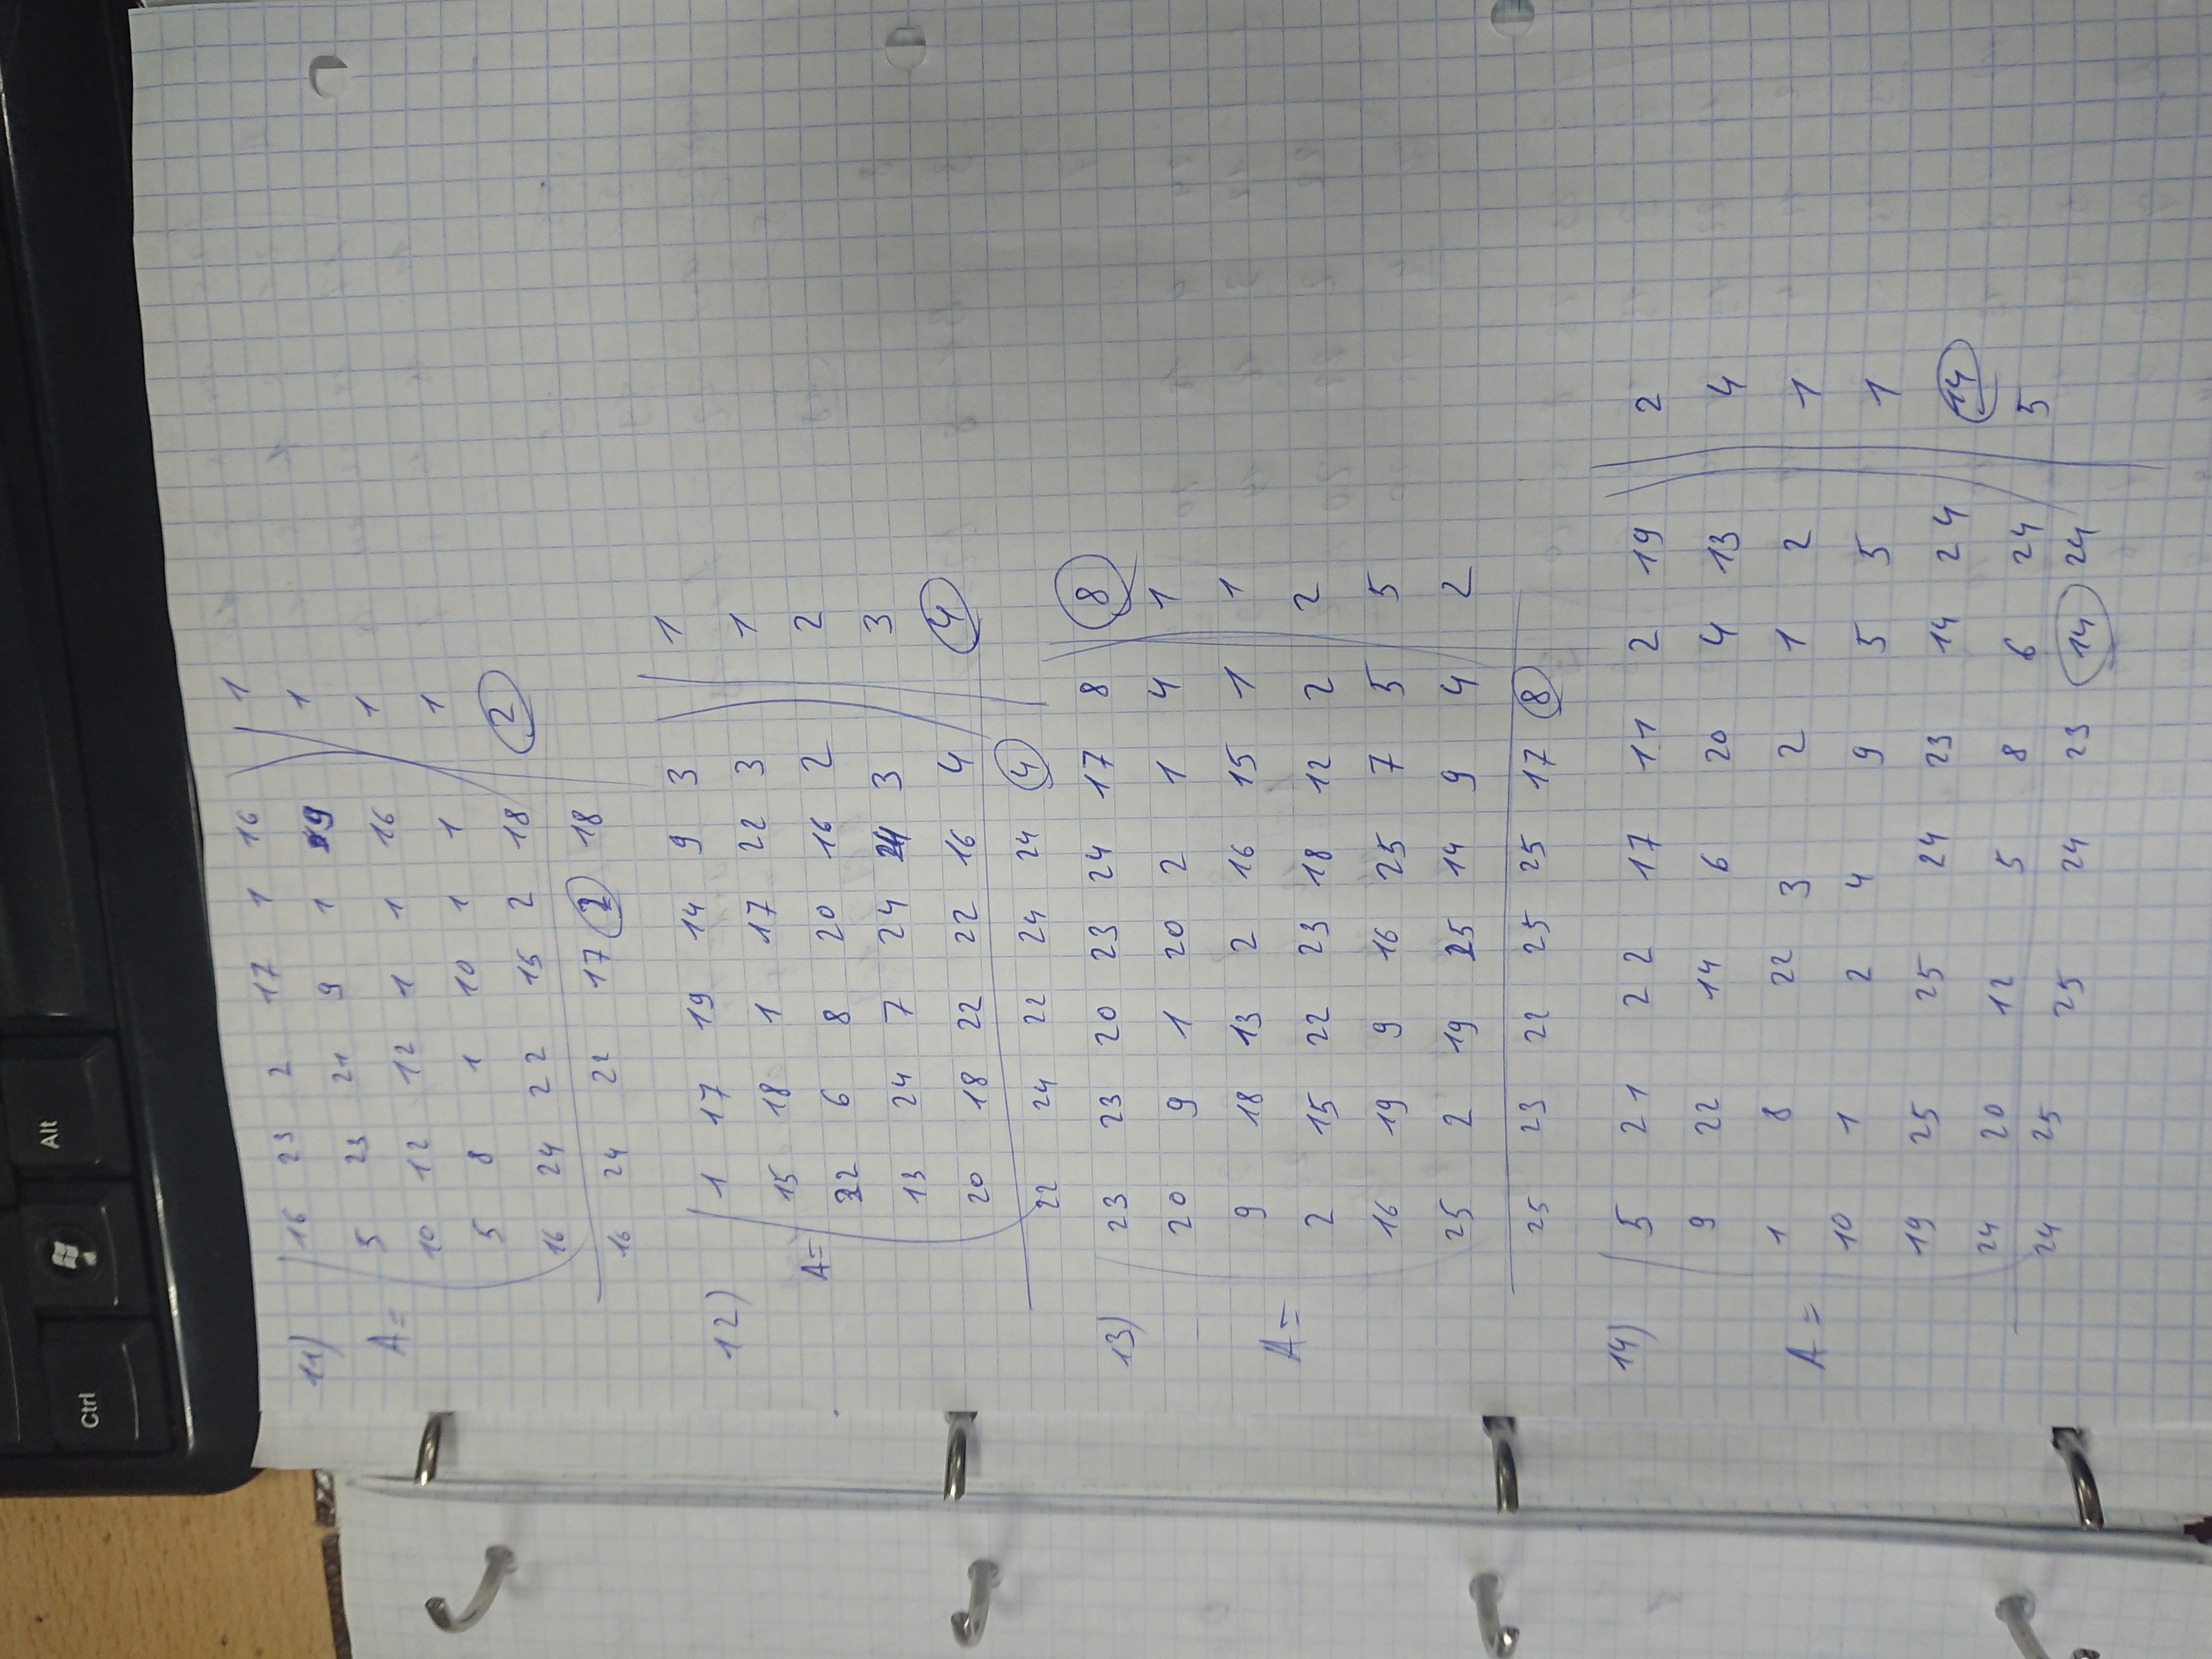 Ctrl Alt
11) 16 23 2 17 1 16 1
5 23 21 9 1 9 1
A= 10 12 12 1 1 16 1
5 8 1 10 1 1 1
16 24 22 15 2 18 2
16 24 22 17 2 18
12) 1 17 19 14 9 3 1
15 18 1 17 22 3 1
A= 22 6 8 20 16 2 2
13 24 7 24 24 3 3
20 18 22 22 16 4 4
22 24 22 24 24 4
13) 23 23 20 23 24 17 8 8
20 9 1 20 2 1 4 1
9 18 13 2 16 15 1 1
A= 2 15 22 23 18 12 2 2
16 19 9 16 25 7 5 5
25 2 19 25 14 9 4 2
25 23 22 25 25 17 8
14) 5 21 22 17 11 2 19 2
9 22 14 6 20 4 13 4
A= 1 8 22 3 2 1 2 1
10 1 2 4 9 5 5 1
19 25 25 24 23 14 24 14
24 20 12 5 8 6 24 5
24 25 25 24 23 14 24